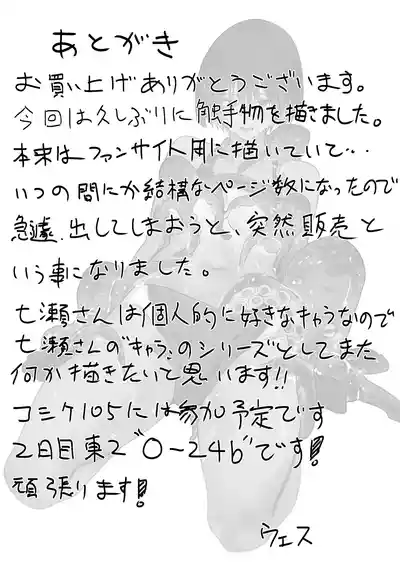 あとがき
お買い上げありがとうございます。
今回は久しぶりに触手物を描きました。
本来はファンサイト用に描いていて・・
いつの間にか結構なページ数になったので
急遽、出してしまおうと、突然販売と
いう事になりました。
七瀬さんは個人的に好きなキャラなので
七瀬さんの"キャラ"のシリーズとしてまた
何か描きたいと思います!!
コミケ105には参加予定です
2日目東2"O-24b"です!
頑張ります!
ウェス